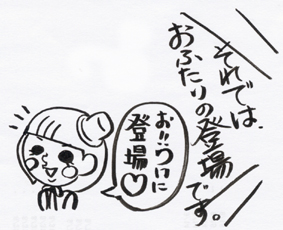 それでは、
おふたりの登場
です。
お!!ついに
登場♡